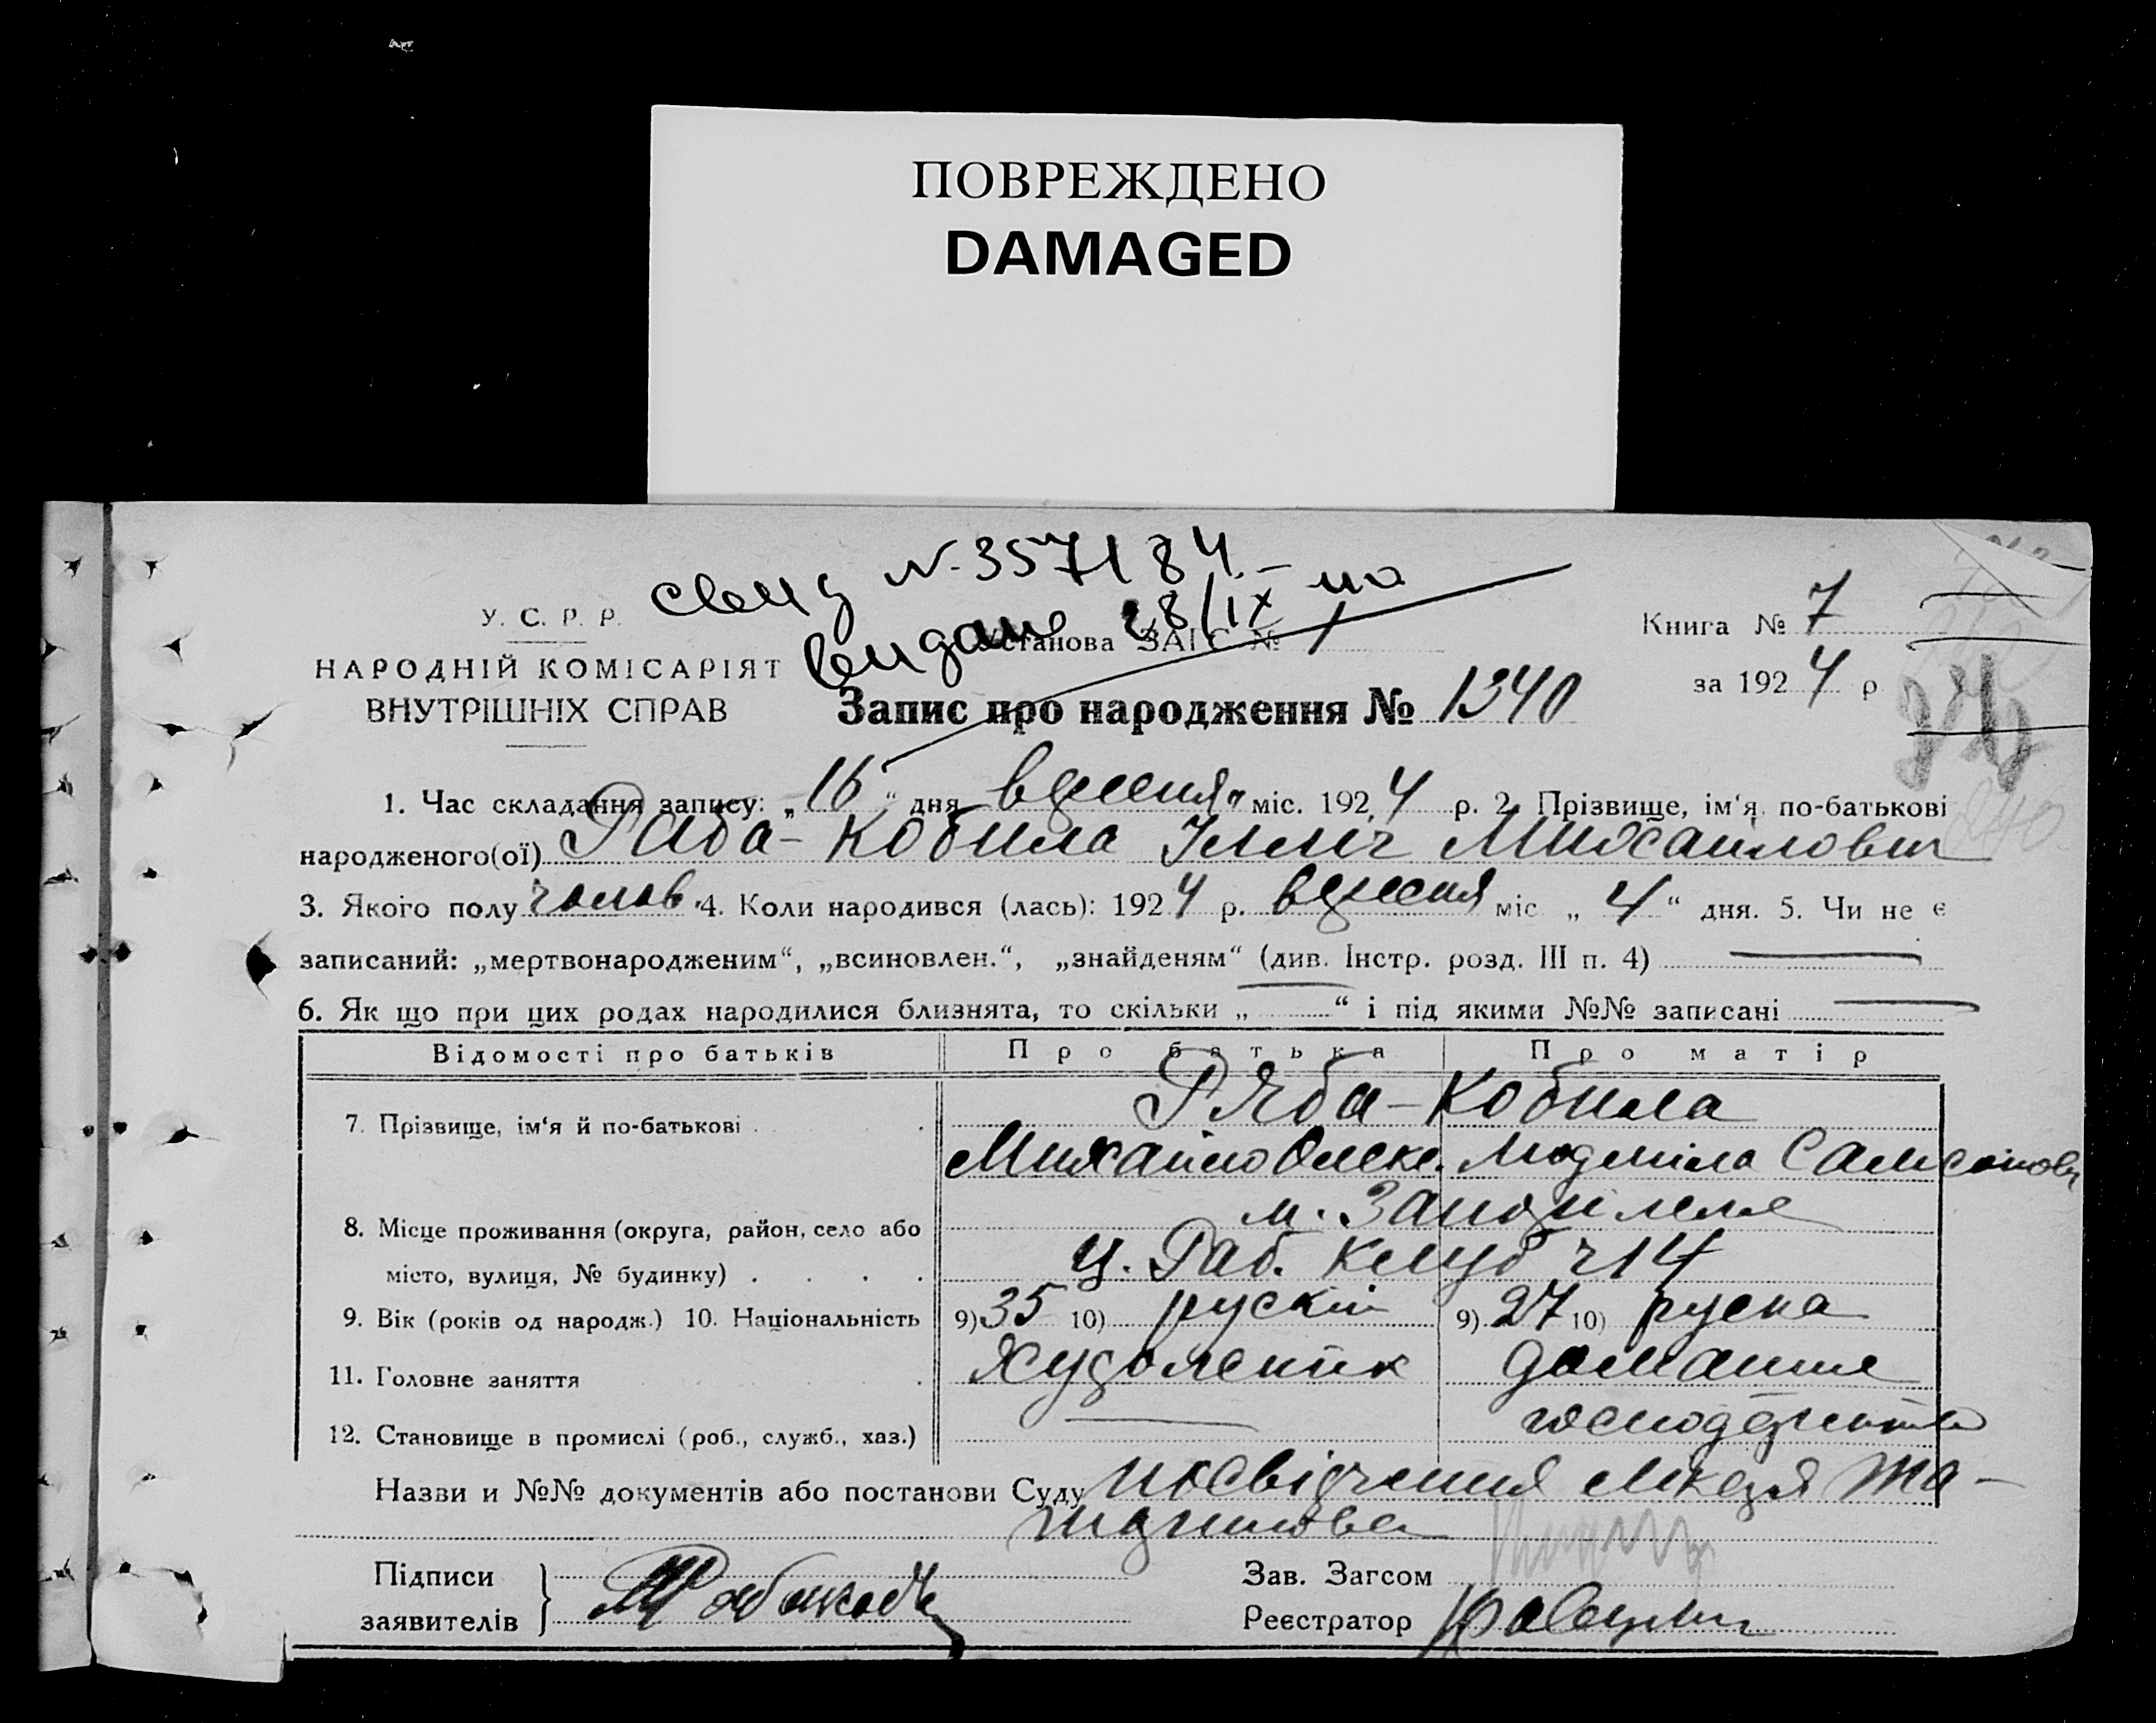 ПОВРЕЖДЕНО
DAMAGED
N. 357184.–
видано 28/IX
У. С. Р. Р.
НАРОДНІЙ КОМІСАРІЯТ
ВНУТРІШНІХ СПРАВ
Установа ЗАГС № 1
Книга № 7
за 1924 р
Запис про народження № 1340
1. Час складання запису: „16“ дня вересня міс. 1924 р. 2. Прізвище, ім‘я, по-батькові
народженого(ої) Раба-Кобила Ілліч Михайлович
3. Якого полу чолов. 4. Коли народився (лась): 1924 р. вересня міс „4“ дня. 5. Чи не є
записаний: „мертвонародженим“, „всиновлен.“, „знайденям“ (див. Інстр. розд. III п. 4) —
6. Як що при цих родах народилися близнята, то скільки „—“ і під якими №№ записані —
Відомості про батьків Про батька Про матір
7. Прізвище, ім‘я й по-батькові Ряба-Кобила
Михайло Олекс. Людміла Самсонов
8. Місце проживання (округа, район, село або
місто, вулиця, № будинку) ц. Раб. клуб ч 14
9. Вік (років од народж.) 10. Національність 9) 35 10) рускій 9) 27 10) руска
11. Головне заняття Художник домашнє
господарство
12. Становище в промислі (роб., служб., хаз.) —
Назви и №№ документів або постанови Суду посвідчення лікаря
Підписи
заявителів
Зав. Загсом
Реєстратор